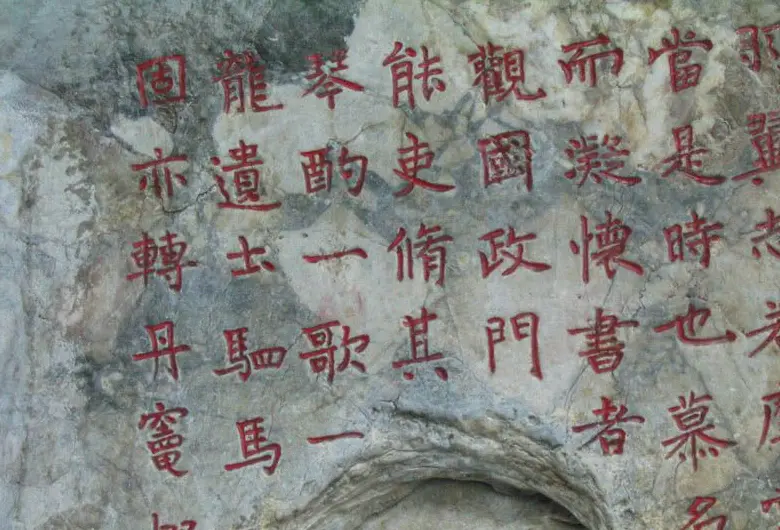 羽翼
當是時也慕
而凝懷書者
觀國政門
能吏脩其
琴酌一歌一
龍遺士駟馬
固亦轉丹竈